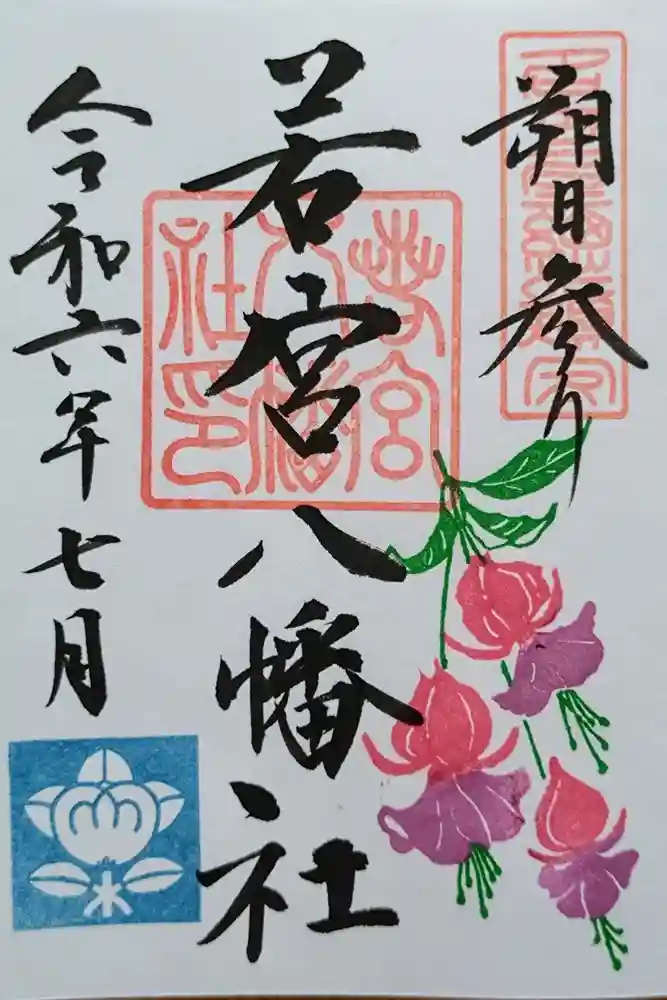 朔日参り
若宮八幡社
若宮
八幡
社印
令和六年七月